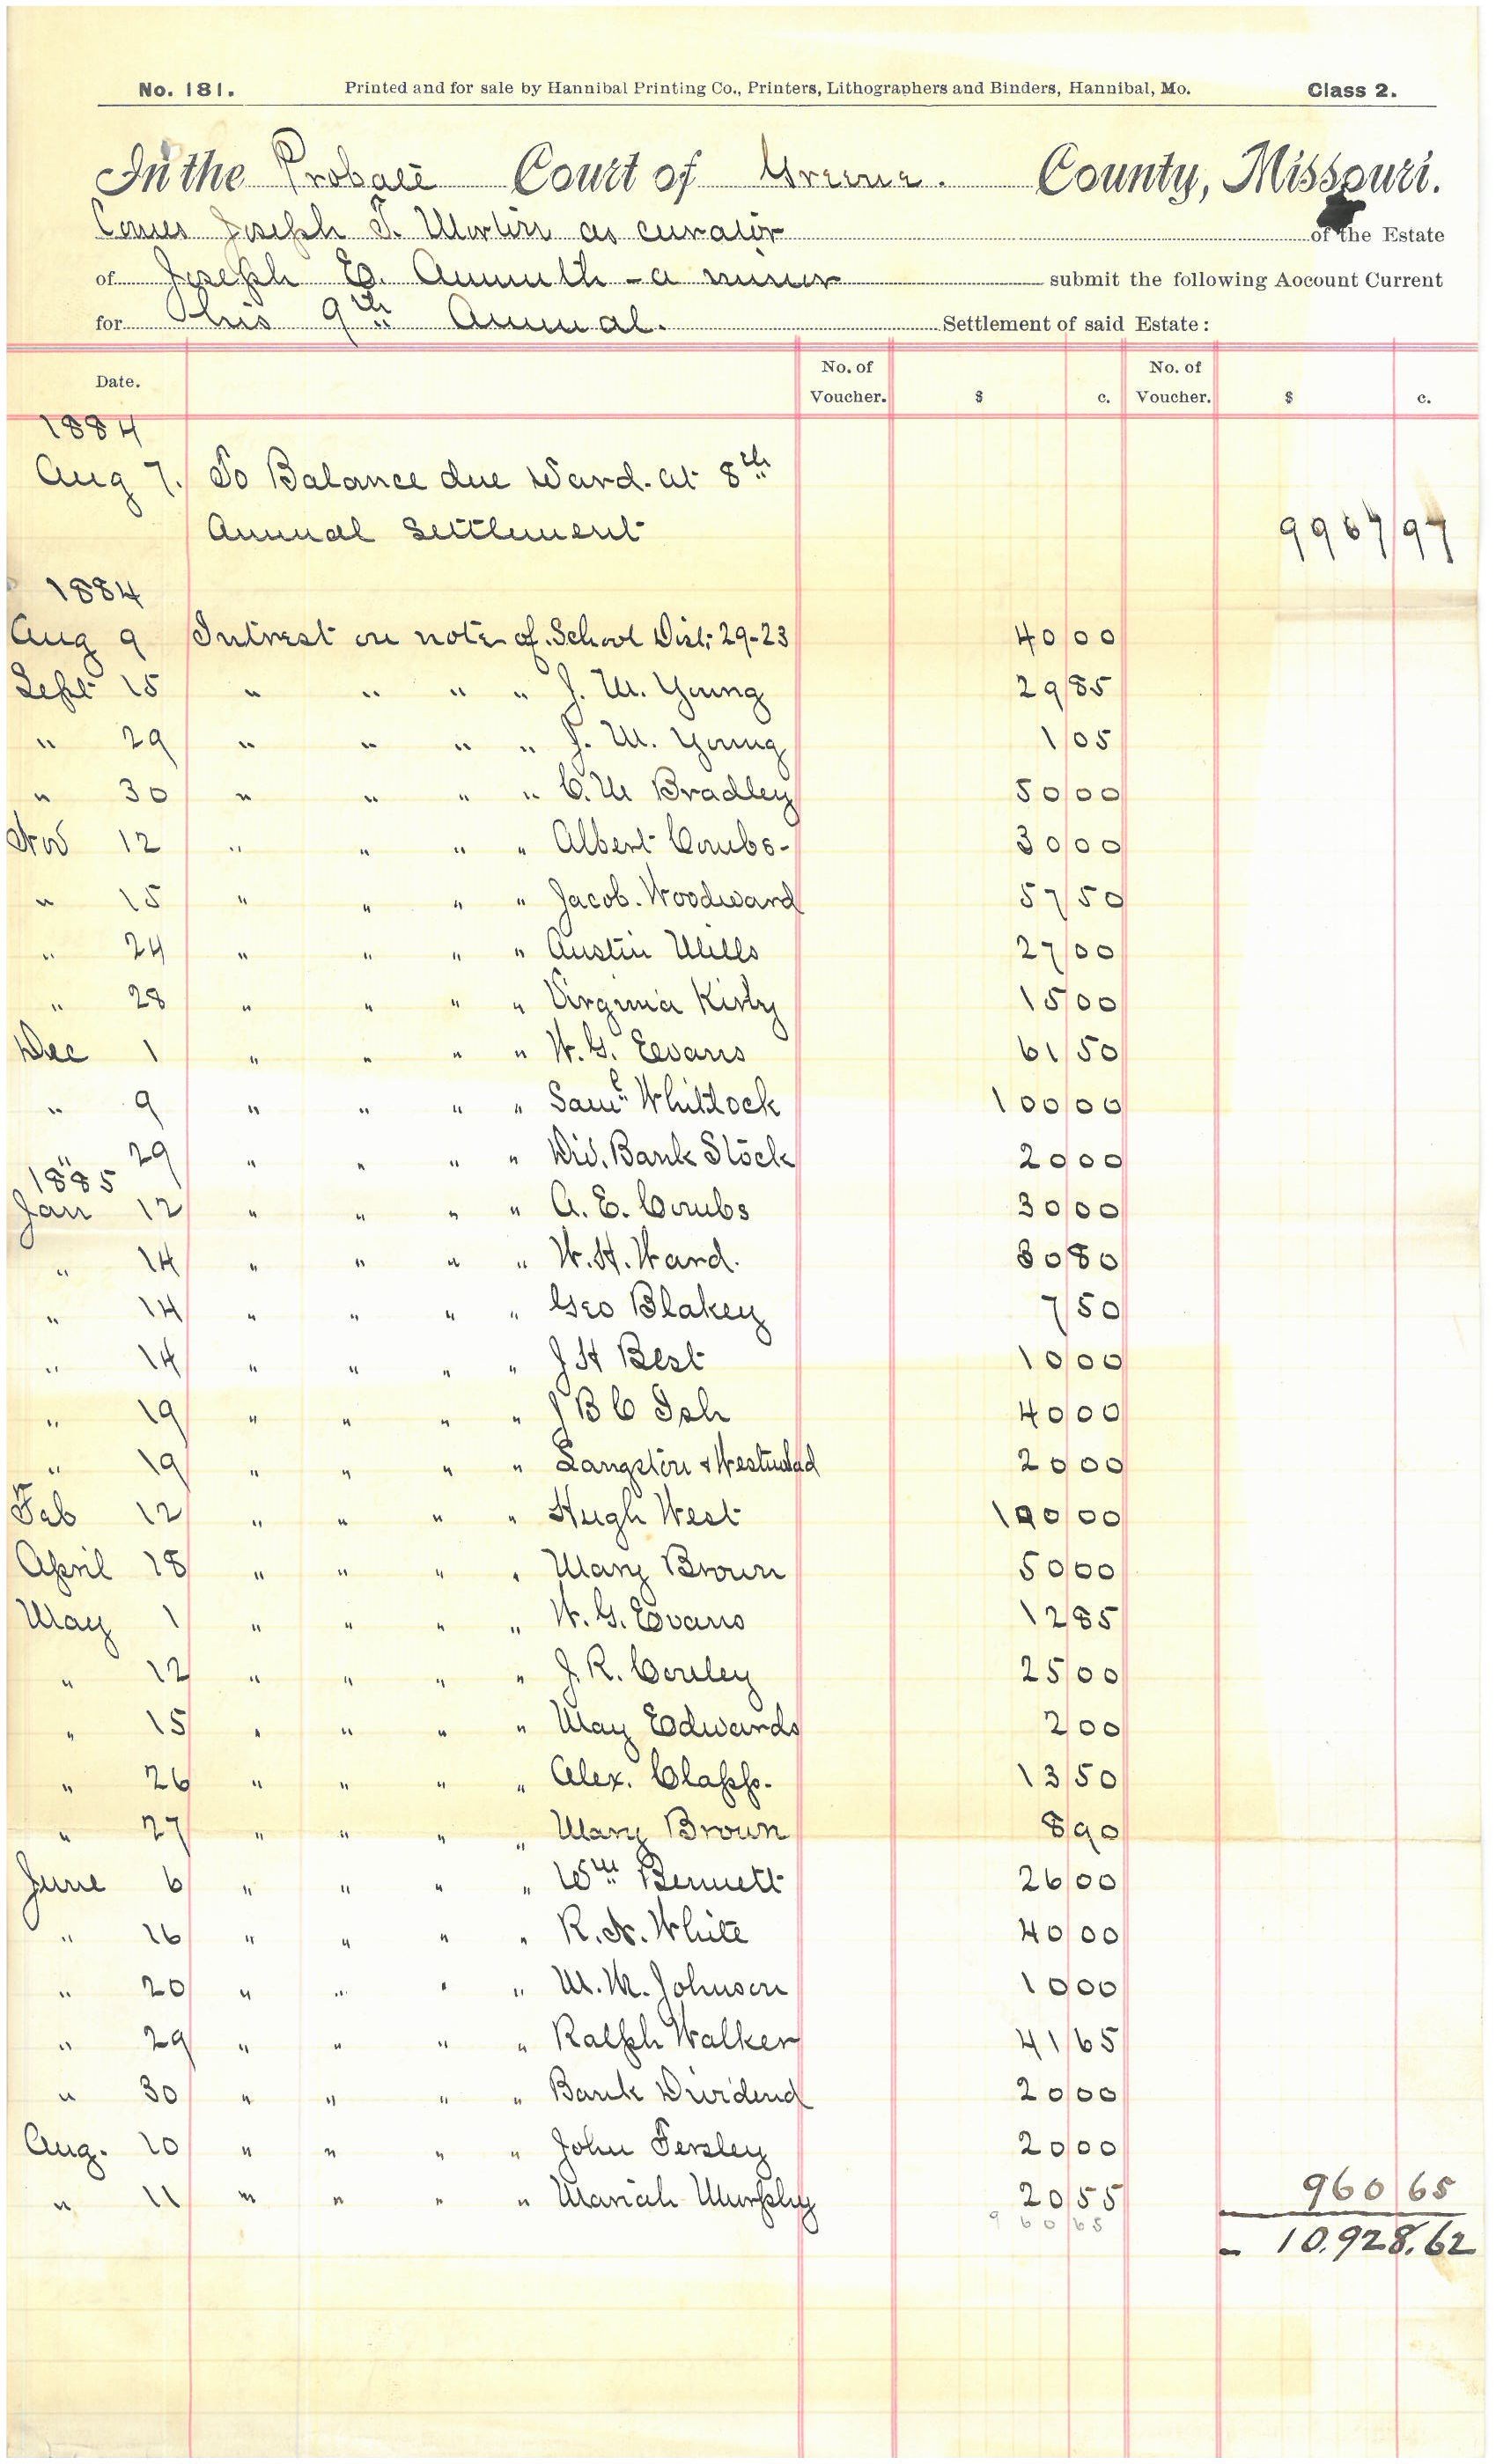 No. 181. Printed and for sale by Hannibal Printing Co., Printers, Lithographers and Binders, Hannibal, Mo. Class 2.
In the Probate Court of Greene. County, Missouri.
Comes Joseph T. Morton as curator of the Estate
of Joseph E. Ammuth - a minor submit the following Account Current
for this 9th Annual. Settlement of said Estate:
Date. No. of Voucher. $ c. No. of Voucher. $ c.
1884
Aug 7. To Balance due Ward. at 8th
Annual Settlement 9967 97
1884
Aug 9 Intrest on note of. School Dist: 29-23 40 00
Sept 15 " " " " J. M. Young 29 85
" 29 " " " " J. M. Young 1 05
" 30 " " " " C. M Bradley 50 00
Nov 12 " " " " Albert Combs- 30 00
" 15 " " " " Jacob. Woodward 57 50
" 24 " " " " Austin Mills 27 00
" 28 " " " " Virginia Kirby 15 00
Dec 1 " " " " W. G. Eevans 61 50
" 9 " " " " Saml Whitlock 100 00
" 29 " " " " Div. Bank Stock 20 00
1885
Jan 12 " " " " A. E. Combs 30 00
" 14 " " " " W. H. Ward. 80 80
" 14 " " " " Geo Blakey 7 50
" 14 " " " " J H Best 10 00
" 19 " " " " J B C Ish 40 00
" 19 " " " " Langston & 20 00
Feb 12 " " " " Hugh West 100 00
April 18 " " " " Mary Brown 50 00
May 1 " " " " W. G. Evans 12 85
" 12 " " " " J. R. Conley 25 00
" 15 " " " " May Edwards 2 00
" 26 " " " " Alex. Clapp. 13 50
" 27 " " " " Mary Brown 8 90
June 6 " " " " Wm Bennett 26 00
" 16 " " " " R. N. White 40 00
" 20 " " " " M. M. Johnson 10 00
" 29 " " " " Ralph Walker 41 65
" 30 " " " " Bank Dividend 20 00
Aug. 10 " " " " John Tersley 20 00
" 11 " " " " Mariah Murphy 20 55 960 65
960 65
10.928.62